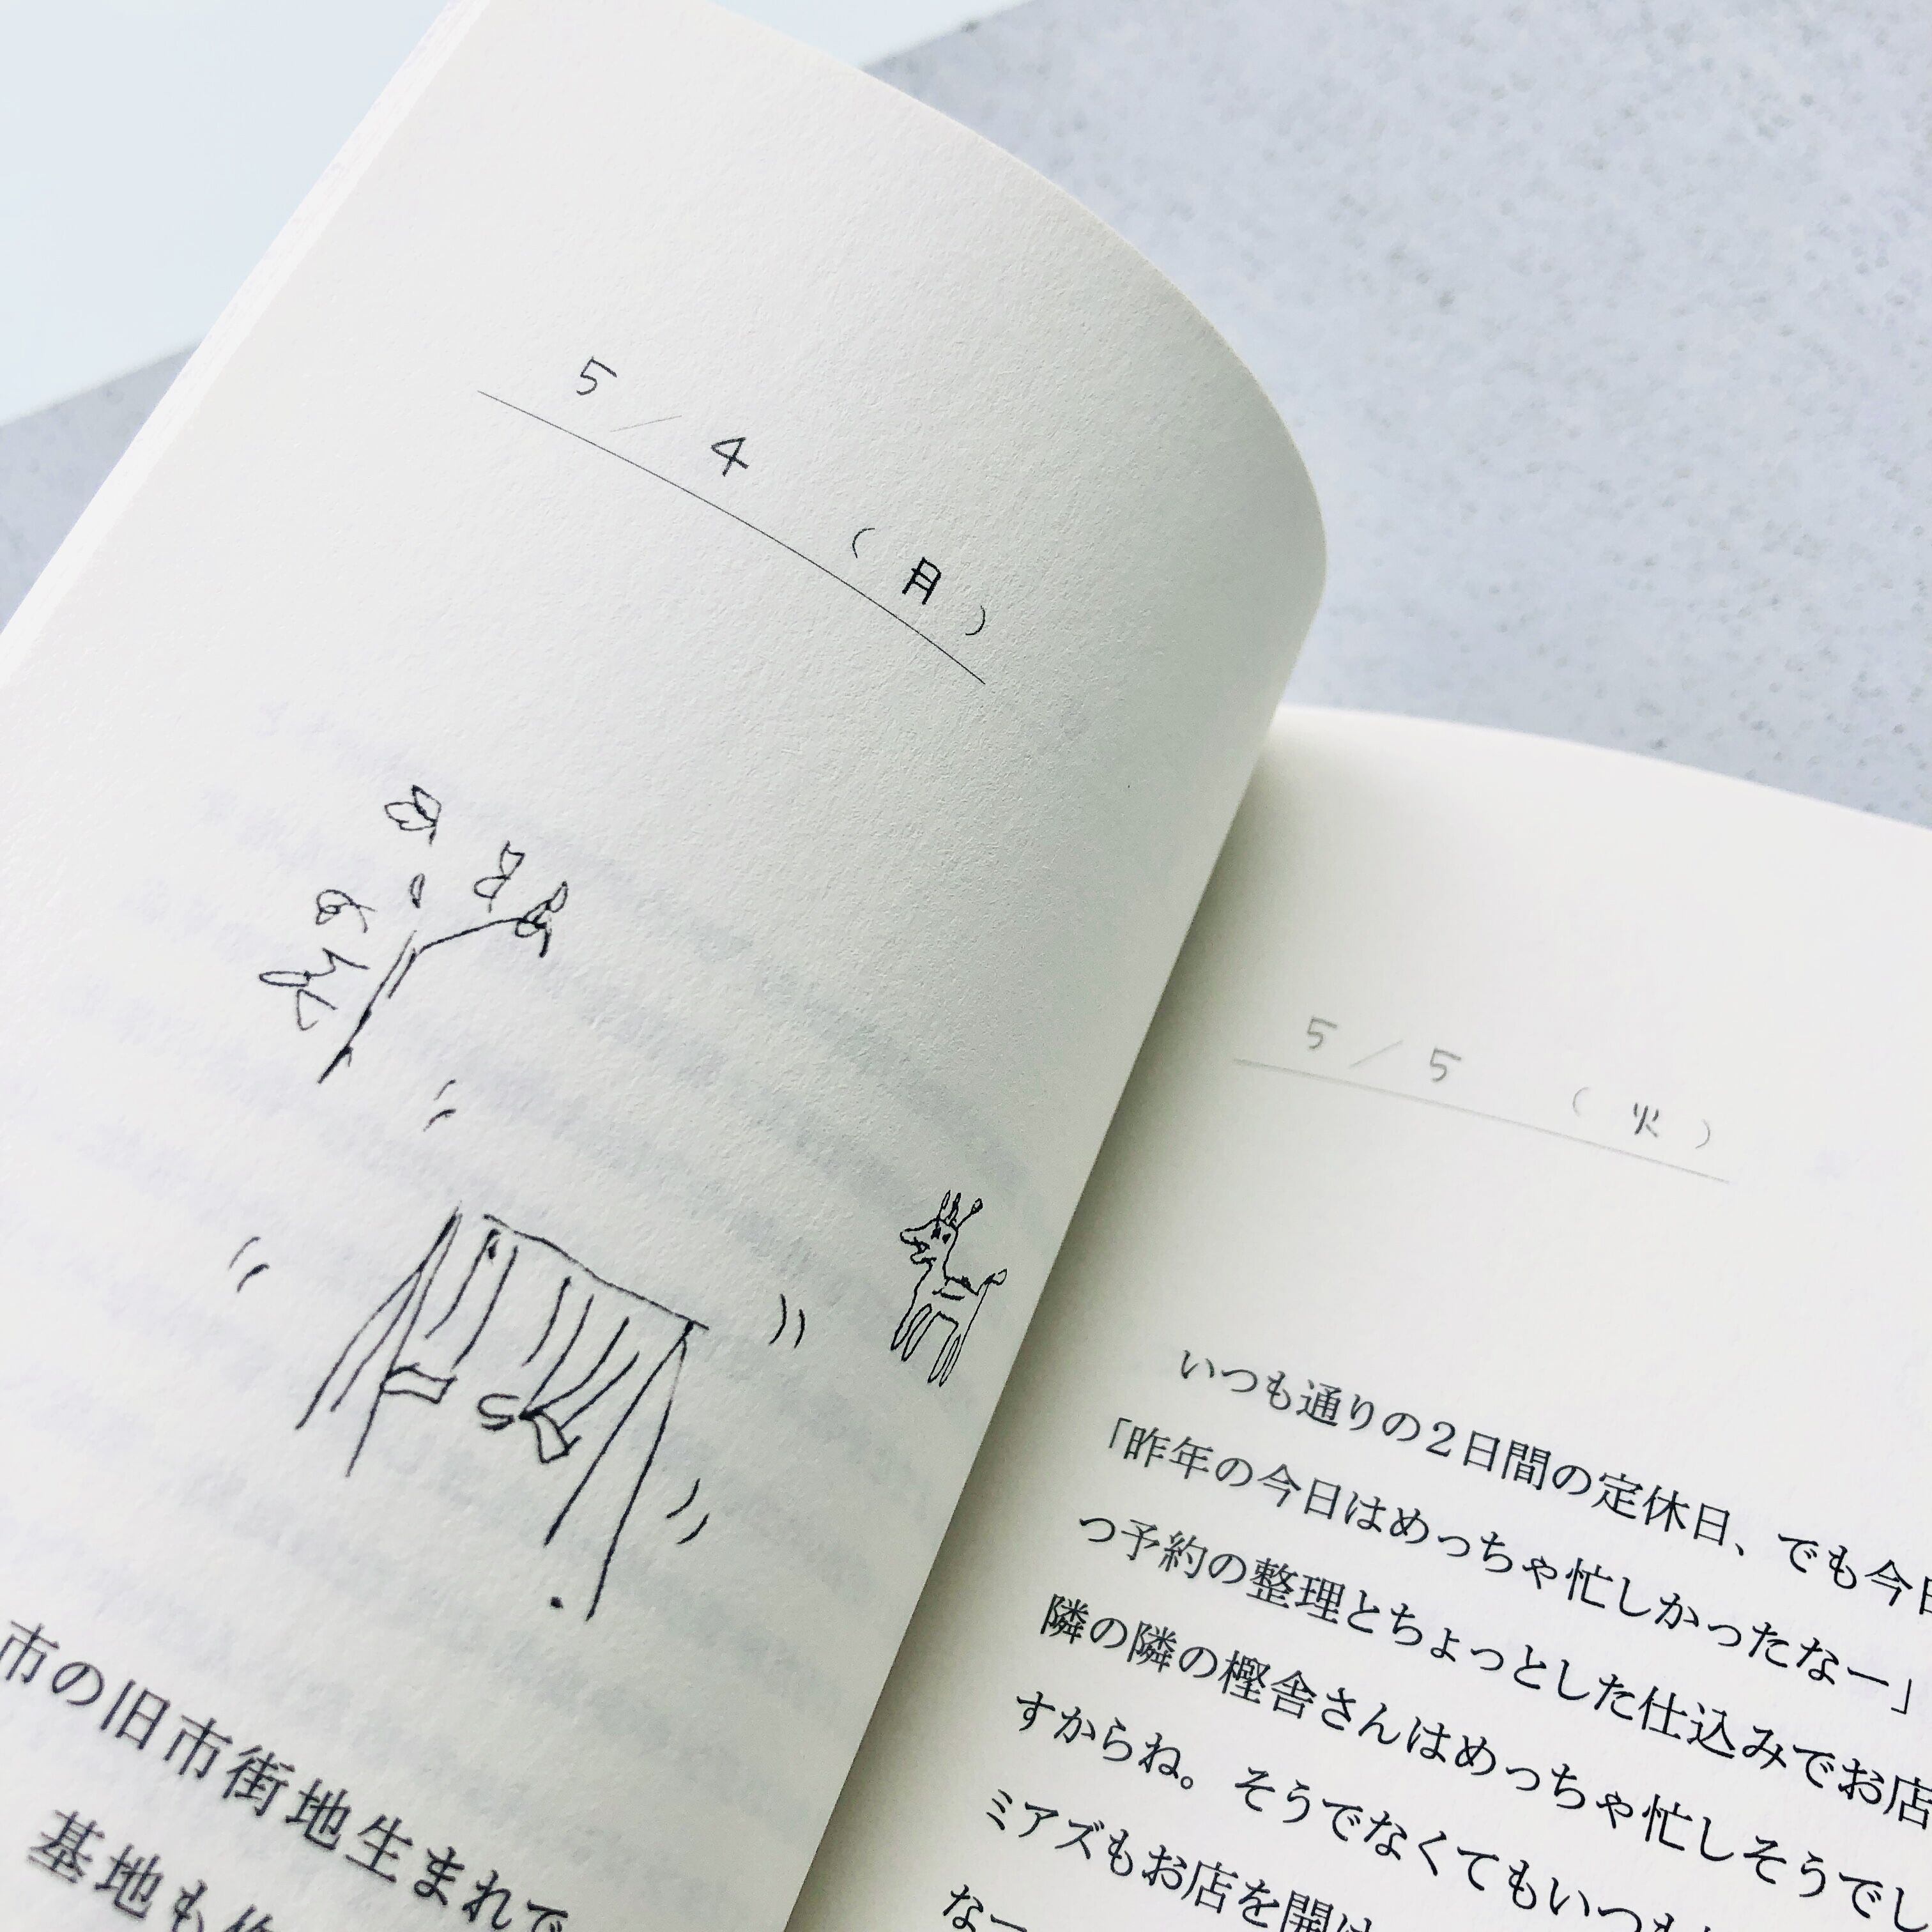 5／4（月）
市の旧市街地生まれで
基地も
5／5（火）
いつも通りの2日間の定休日、でも今日
「昨年の今日はめっちゃ忙しかったなー」
つ予約の整理とちょっとした仕込みでお店
隣の隣の樫舎さんはめっちゃ忙しそうでし
すからね。そうでなくてもいつも
ミアズもお店を開け
なー